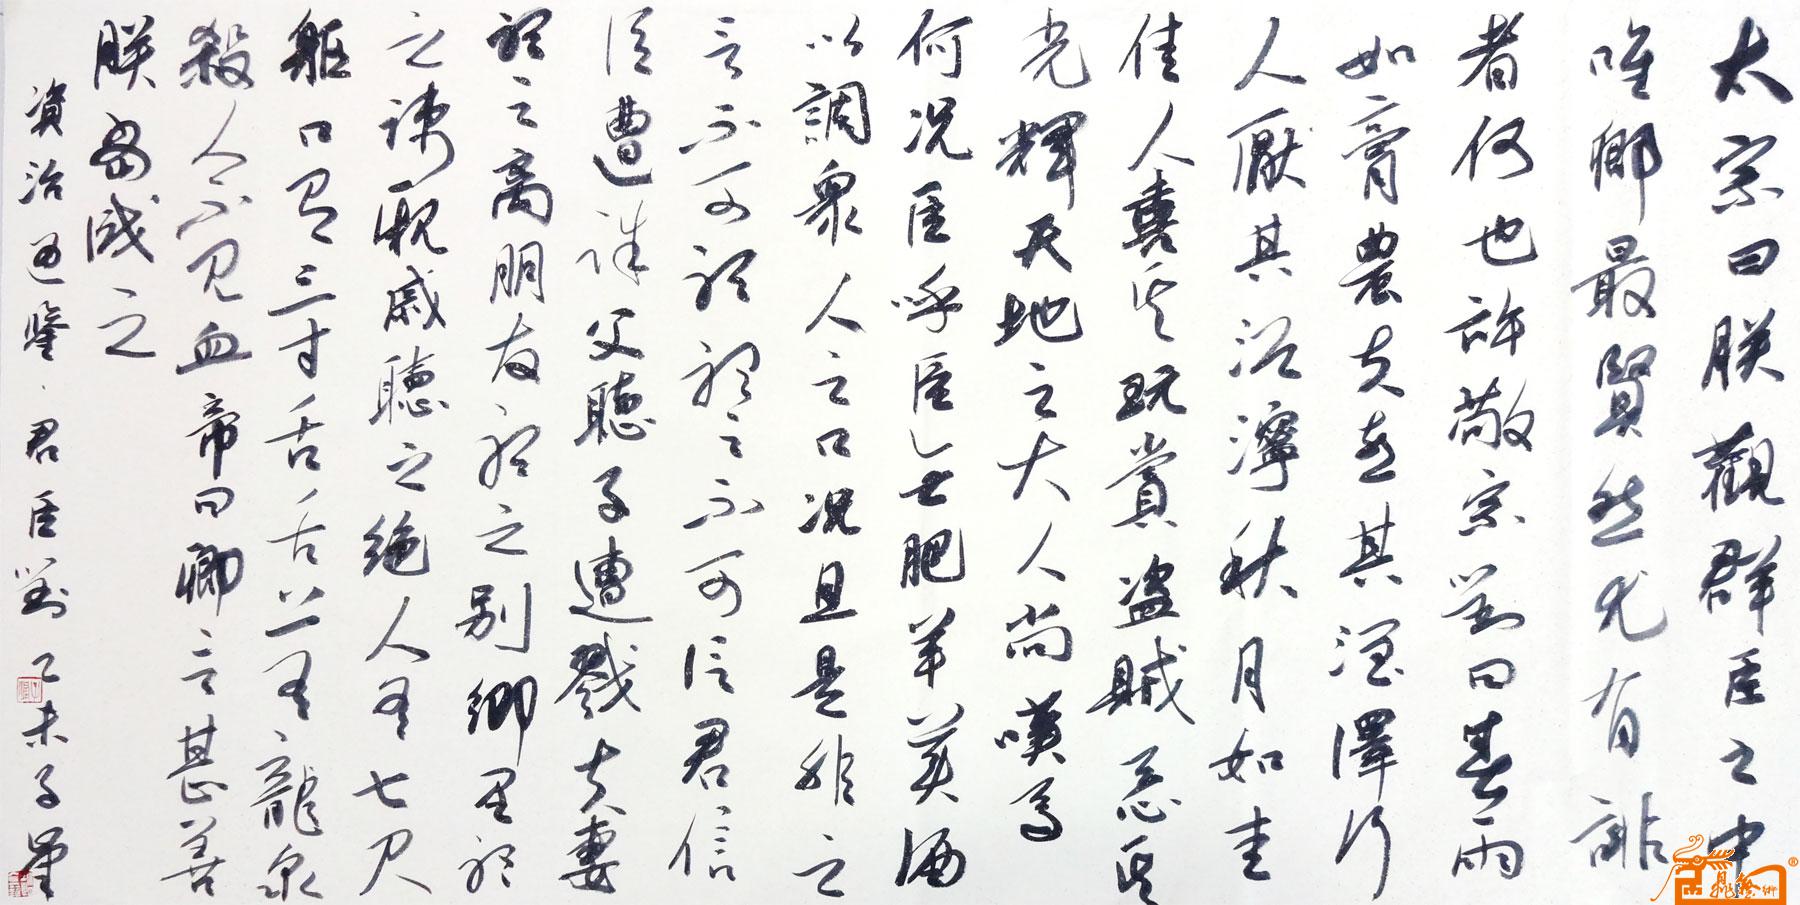 太宗曰朕觀群臣之中
唯卿最賢然尤有誹
者何也許敬宗對曰春雨
如膏農夫喜其澤行
人厭其泥濘秋月如圭
佳人喜其玩賞盜賊惡其
光輝天地之大人尚嘆焉
何況臣呼臣無肥羊美酒
以調眾人之口況且是非之
言不可聽聽之不可信君信
臣遭誅父聽子遭戮夫妻
聽之離朋友聽之別鄉里聽
之疎親戚聽之絕人有七尺
軀口有三寸舌舌上有龍泉
殺人不見血帝曰卿言甚善
朕當識之
資治通鑒、君臣對 乙未子